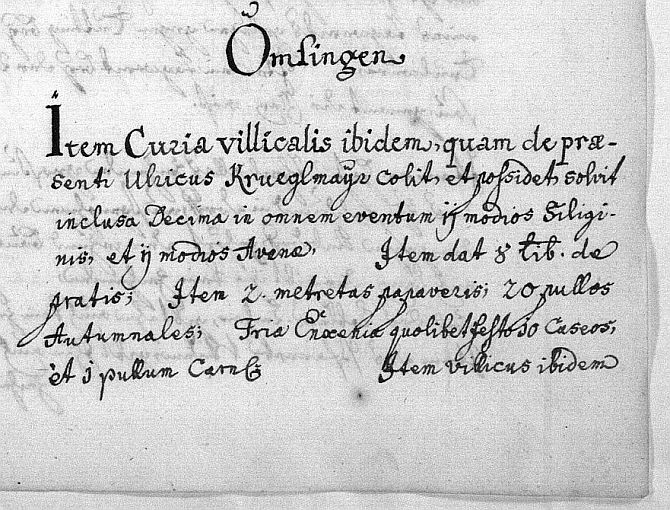 Ömsingen
Item Curia villicalis ibidem, quam de præ-
senti Ulricus Krueglmayr colit, et possidet, solvit
inclusa Decima in omnem eventum ij modios Siligi-
nis, et ij modios Avenæ, Item dat 8 lib. de
pratis; Item 2. metretas papaveris; 20 pullos
Autumnales; Tria Enxenia quolibet festo 10 Caseos,
et 1 pullum Carn
Item villicus ibidem